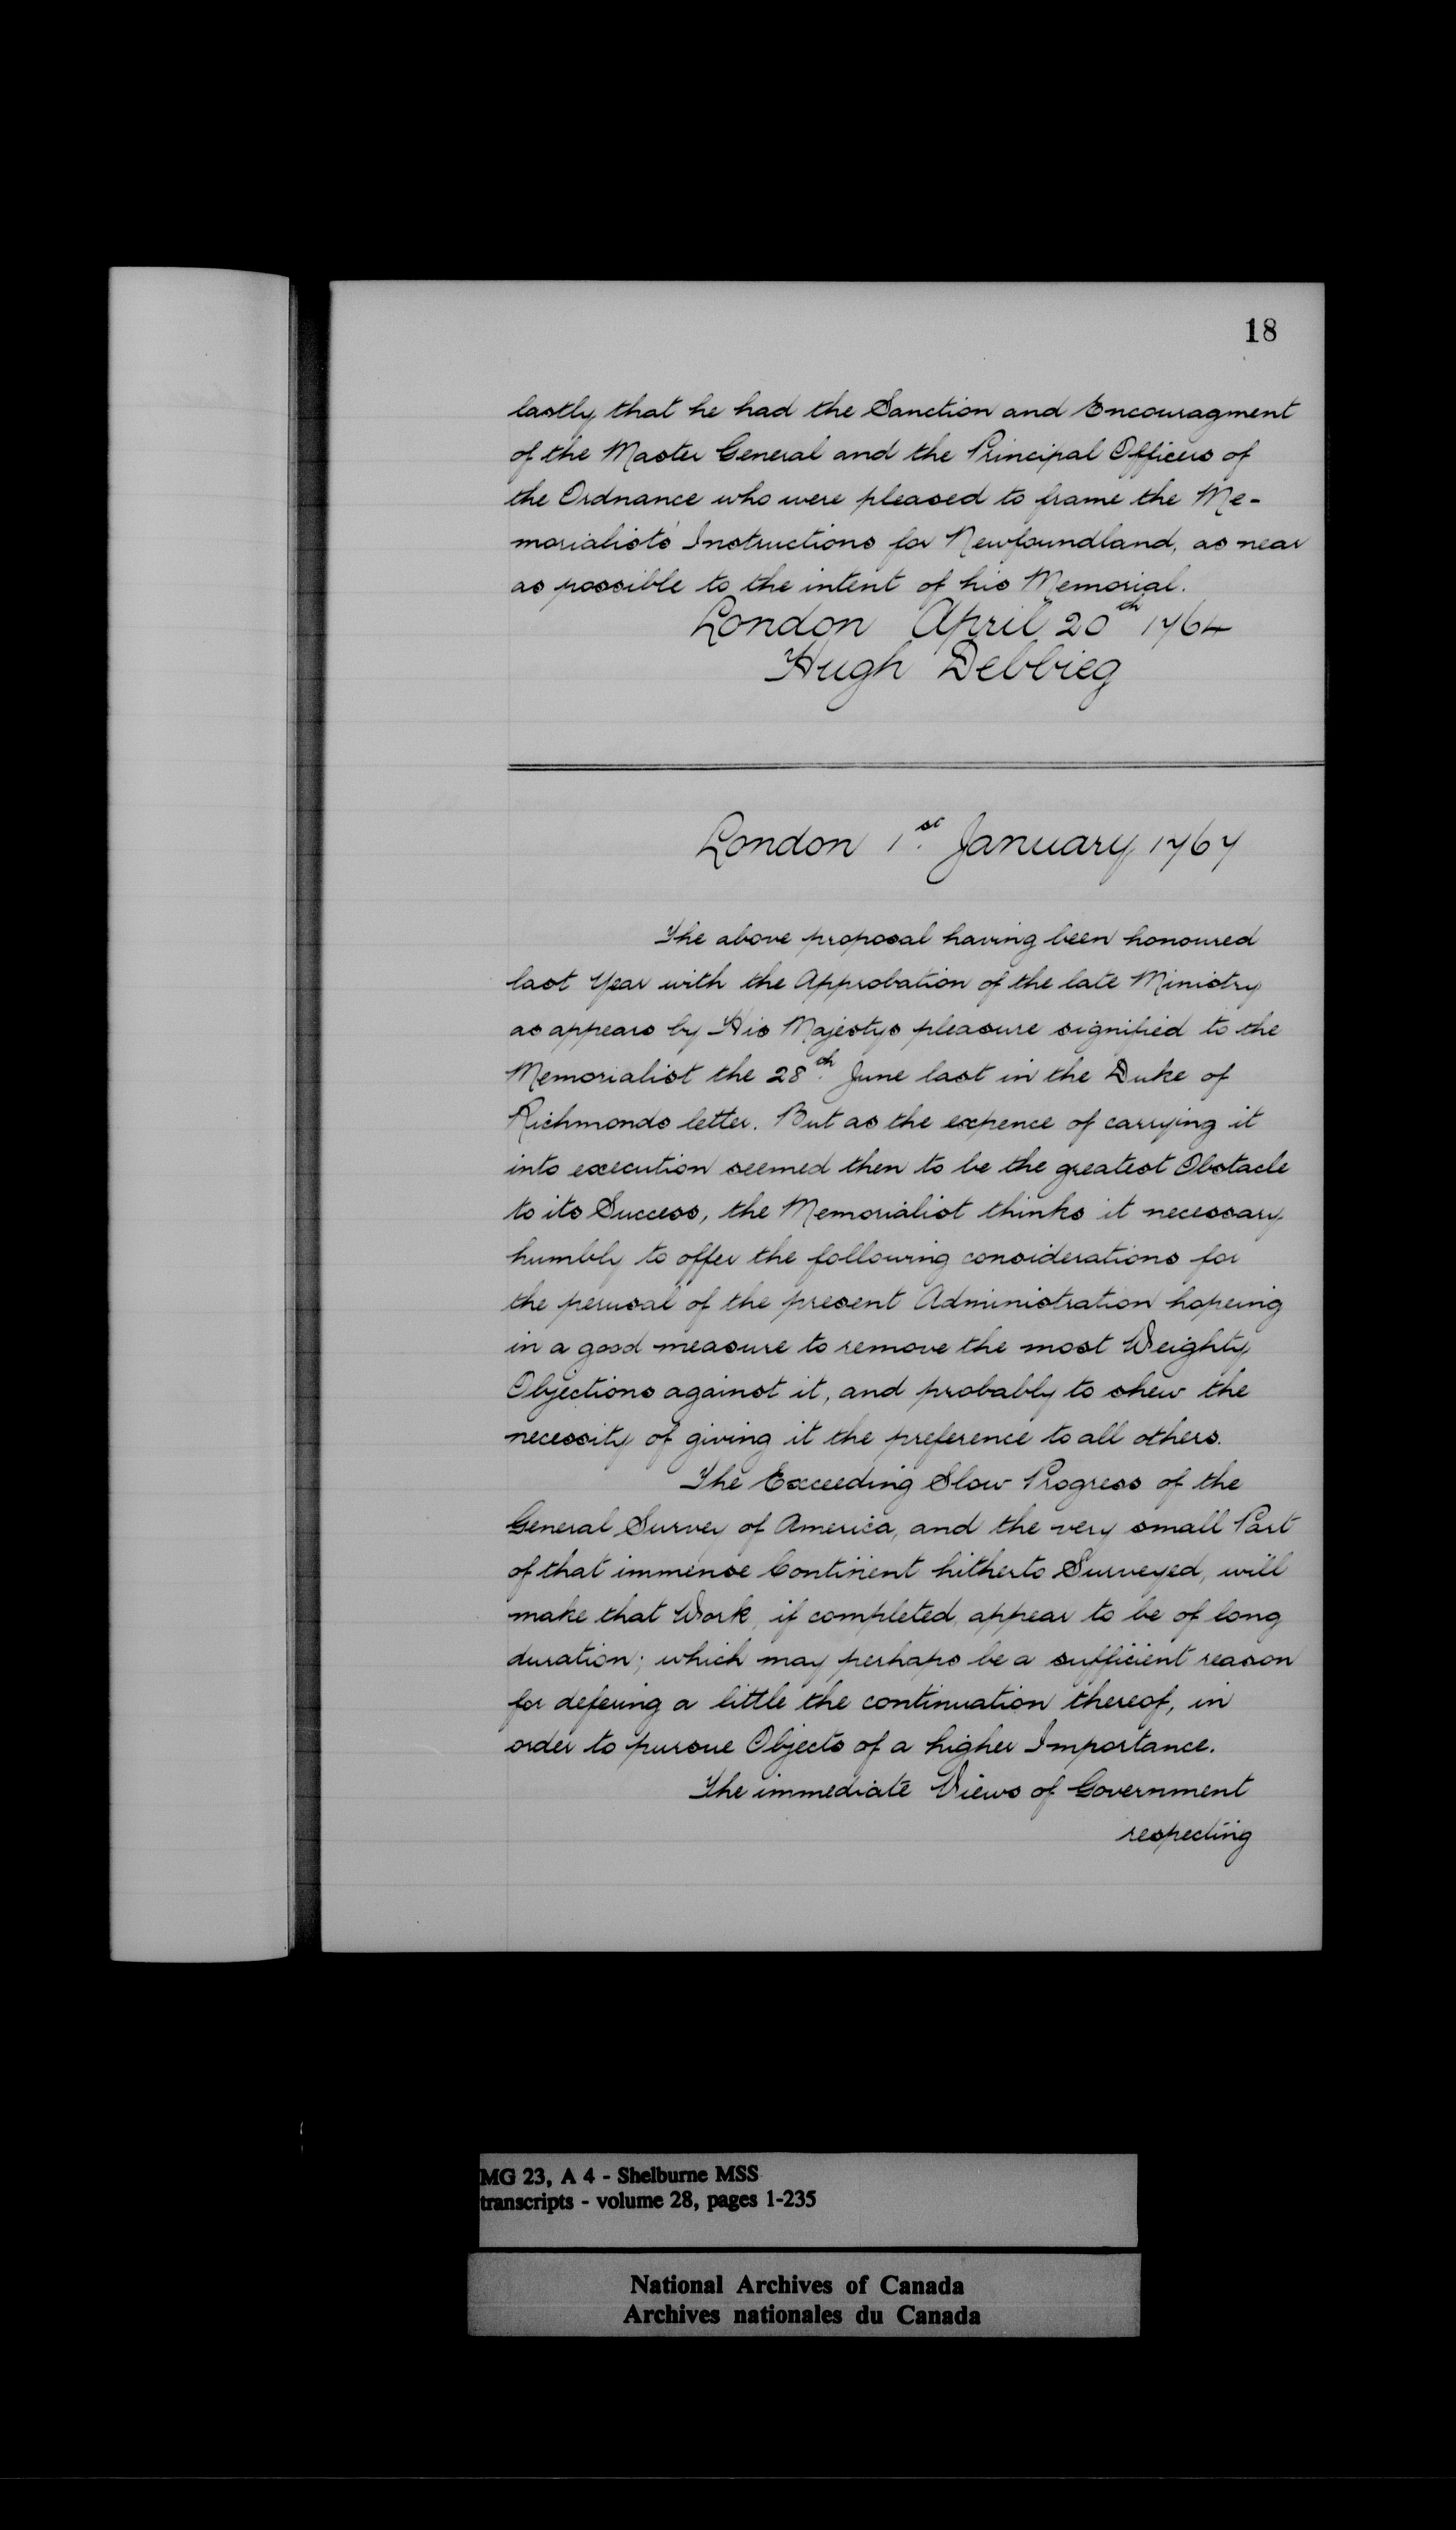 18
lastly that he had the Sanction and Encouragment
of the Master General and the Principal Officers of
the Ordnance who were pleased to frame the Me-
morialists' Instructions for Newfoundland, as near
as possible to the intent of his Memorial.
London April 20th 1764
Hugh Debbieg
London 1st. January 1767
The above proposal having been honoured
last Year with the Approbation of the late Ministry
as appears by His Majestys pleasure signified to the
Memorialist the 28th. June last in the Duke of
Richmonds letter. But as the expence of carrying it
into execution seemed then to be the greatest Obstacle
to its Success, the Memorialist thinks it necessary
humbly to offer the following considerations for
the perusal of the present Administration hopeing
in a good measure to remove the most Weighty
Objections against it, and probably to shew the
necessity of giving it the preference to all others.
The Exceeding Slow Progress of the
General Survey of America, and the very small Part
of that immense Continent hitherto Surveyed, will
make that Work, if completed, appear to be of long
duration; which may perhaps be a sufficient reason
for defering a little the continuation thereof, in
order to pursue Objects of a higher Importance.
The immediate Views of Government
respecting
MG 23, A 4 - Shelburne MSS
transcripts - volume 28, pages 1-235
National Archives of Canada
Archives nationales du Canada